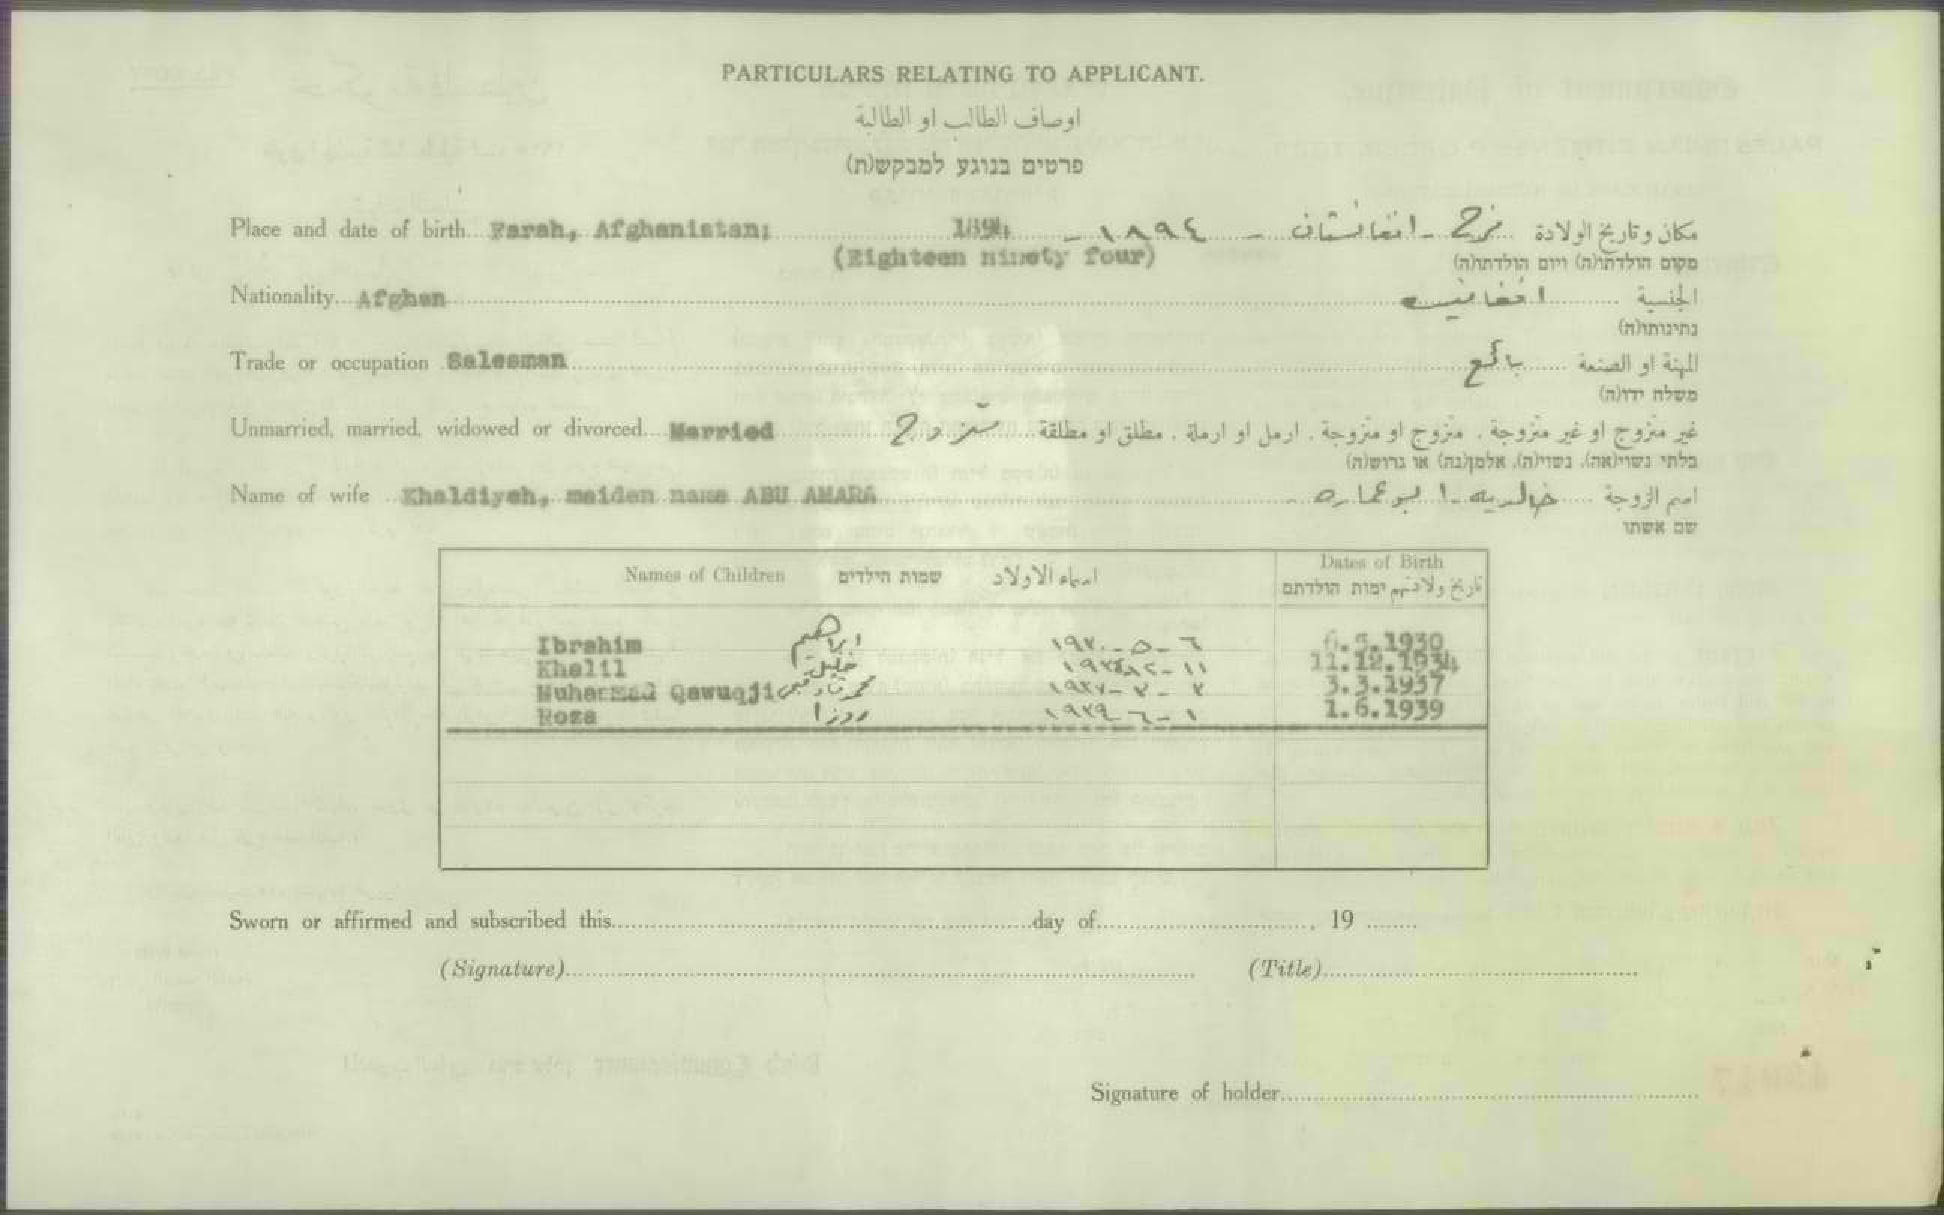 PARTICULARS RELATING TO APPLICANT.
اوصاف الطالب او الطالبة
פרטים בנוגע למבקש(ת)
Place and date of birth Farah, Afghanistan; 1894 - ١٨٩٤ - فرح - افغانستان مكان وتاريخ الولادة
(Eighteen ninety four) מקום הולדתו(ה) ויום הולדתו(ה)
Nationality Afghan افغانيه الجنسية
נתינותו(ה)
Trade or occupation Salesman بائع المهنة او الصنعة
משלח ידו(ה)
Unmarried, married, widowed or divorced Married متزوج غير متزوج او غير متزوجة ، متزوج او متزوجة ، ارمل او ارملة ، مطلق او مطلقة
בלתי נשוי(אה), נשוי(ה), אלמן(נה) או גרוש(ה)
Name of wife Khaldiyeh, maiden name ABU AMARA خالديه - ابو عماره اسم الزوجة
שם אשתו
Names of Children שמות הילדים اسماء الاولاد Dates of Birth
تاريخ ولادتهم ימות הולדתם
Ibrahim ابراهيم ٦ - ٥ - ١٩٣٠ 6.5.1930
Khalil خليل ١١ - ١٢ - ١٩٣٤ 11.12.1934
Muhammad Qawuqji محمد قاوقجي ٣ - ٣ - ١٩٣٧ 3.3.1937
Roza روزا ١ - ٦ - ١٩٣٩ 1.6.1939
Sworn or affirmed and subscribed this day of , 19
(Signature) (Title)
Signature of holder